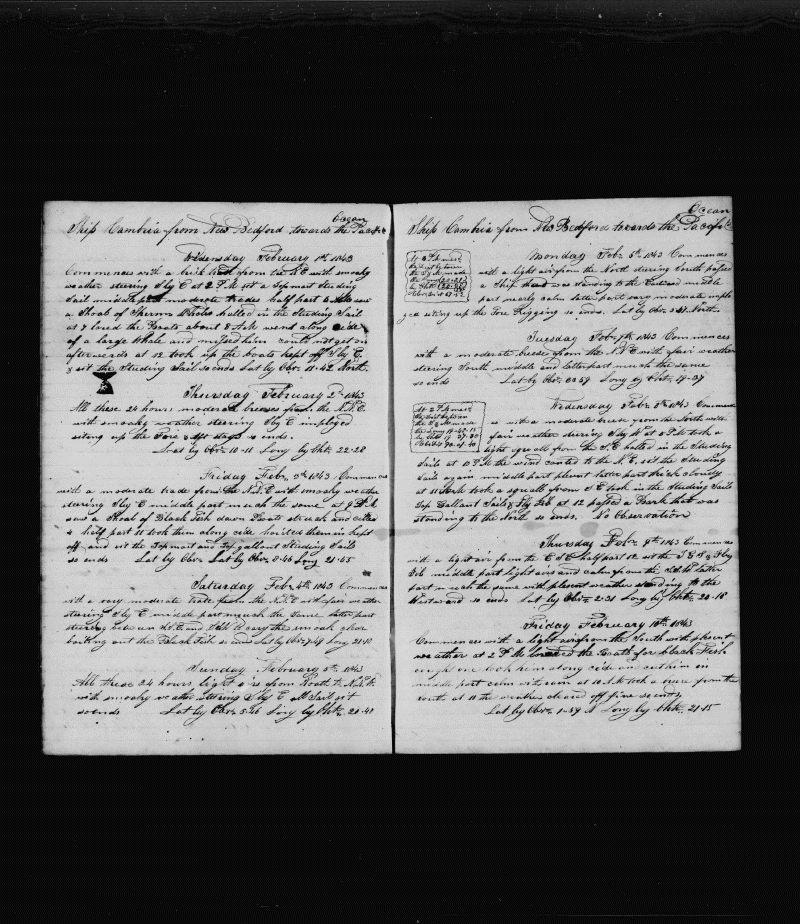 Ocean
Ship Cambria from New Bedford towards the Pacific
Wedensday February 1st 1843
Commences with a brisk trad from the N.E with smoaky
weather steering S by E at 2 P.M set a Topmast Studing
Sail middle part moderate trades half part 6 AM saw
a Shoal of Sperm Whales halled in the Studing Sail
at 7 lored the Boats about 8 AM went along side
of a large Whale and missed him could not get on
afterwards at 12 took up the boats kept off S by E
& set the Studing Sail so ends Lat by Obr. 11-42 North
Thursday February 2nd 1843
All these 24 hours moderate breeses from the N.N.E.
with smoaky weather steering S by E imployed
siting up the Fore & Aft stays so ends.
Lat by Obr 10-11 Long by Chr. 22-28
Friday Febr. 3rd 1843 Commences
with a moderate trade from the N.N.E with smoaky weather
steering S by E middle part much the same at 9 P.M
saw a Shoal of Black Fish down Boats struck and killed
4 half part 11 took them along side hoisted them in kept
off and sit the Topmast and Topgallant Studing Sails
so ends Lat by Obr Lat by Obr 8-46 Long 21-55
Saturday Feb. 4th 1843 Commences
with a very moderate trade from the N.N.E with fair weather
steering S by E middle part much the same latter part
steering between S.S.E and S.W. to cary the smoak clear
boiling out the Black Fish so ends Lat by Obr 7-49 Long 21-18
Sunday February 5th 1843
All these 24 hours light airs from North to N.N.W.
with smoaky weather steering S by E all Sail sit
so ends Lat by Obr. 5-26 Long by Chr. 20-41
Ocean
Ship Cambria from New Bedford towards the Pacific
Monday Feb. 5th 1843 Commences
with a light air from the North steering South passed
a Ship that was standing to the middle
part nearly calm latter part vary moderate imploy
ged siting up the Fore Rigging so ends. Lat by Obr. 3-27 North.
Tuesday Feb. 7th 1843 Commences
with a moderate breese from the N.N.E with fair weather
steering South middle and latter part much the same
so ends Lat by Obr 0-57 Long by Chr. 19-37
Wedensday Febr. 8th 1843 Commences
with a moderate breese from the North with
fair weather steering S by W at 3 P.M took a
light squall from the S.E halled in the Studing
Sails at 10 P.M the wind canted to the N.E. sit the Studing
Sails again middle part plesent latter part thick cloudy
at 11 AM took a squall from S.E took in the Studing Sails
Top Gallant Sails & Fly Jib at 12 passed a Bark that was
standing to the North so ends. No Observation
Thursday Feb. 9th 1843 Commences
with a light air from the E.S.E half part 12 sit the T G S & Flng
Jib middle part light airs and calm from the latter
part much the same with plesent weather standing to the
Westward so ends Lat by Obr. 2-31 Long by Chr. 20-18
Friday February 10th 1843
Commences with a light air from the South with plesent
weather at 2 P.M lowered the Boats for black Fish
caught one took him along side and cut him in
middle part calm with rain at 10 AM took a breese from the
South at 11 the weather cleard off fine so ends
Lat by Obr. 1-59 S Long by Chr. 21-15